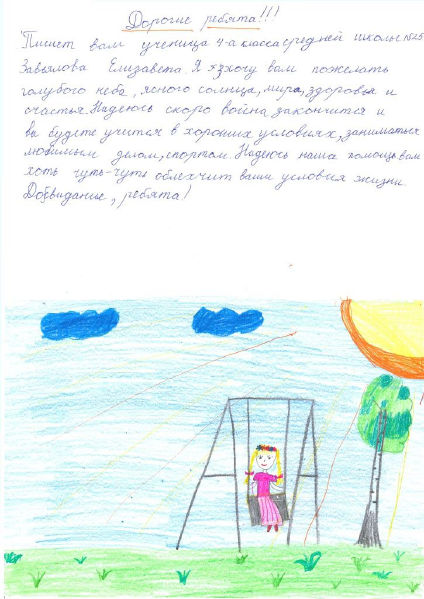 Дорогие ребята!!!
Пишет вам ученица 4-а класса средней школы №25
Завьялова Елизавета. Я хочу вам пожелать
голубого неба, ясного солнца, мира, здоровья и
счастья. Надеюсь скоро война закончится и
вы будете учится в хороших условиях, заниматься
любимым делом, спортом. Надеюсь наша помощь вам
хоть чуть-чуть облехчит ваши условия жизни.
Досвидание, ребята!